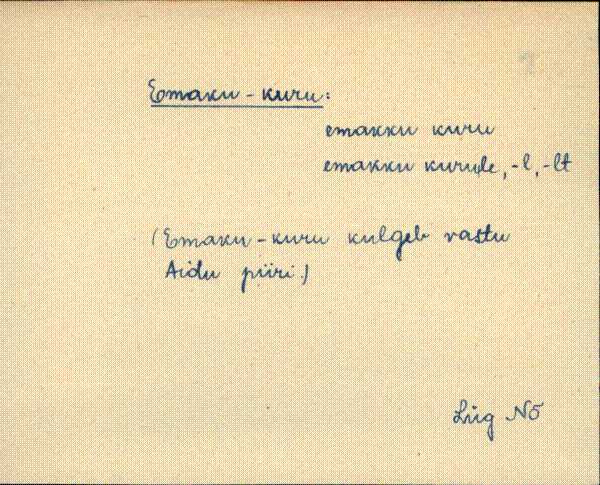 Emaku-kuru:
emakku kuru
emakku kurule, -l, -lt
(Emaku-kuru kulgeb vastu
Aidu piiri.)
Lüg Nõ